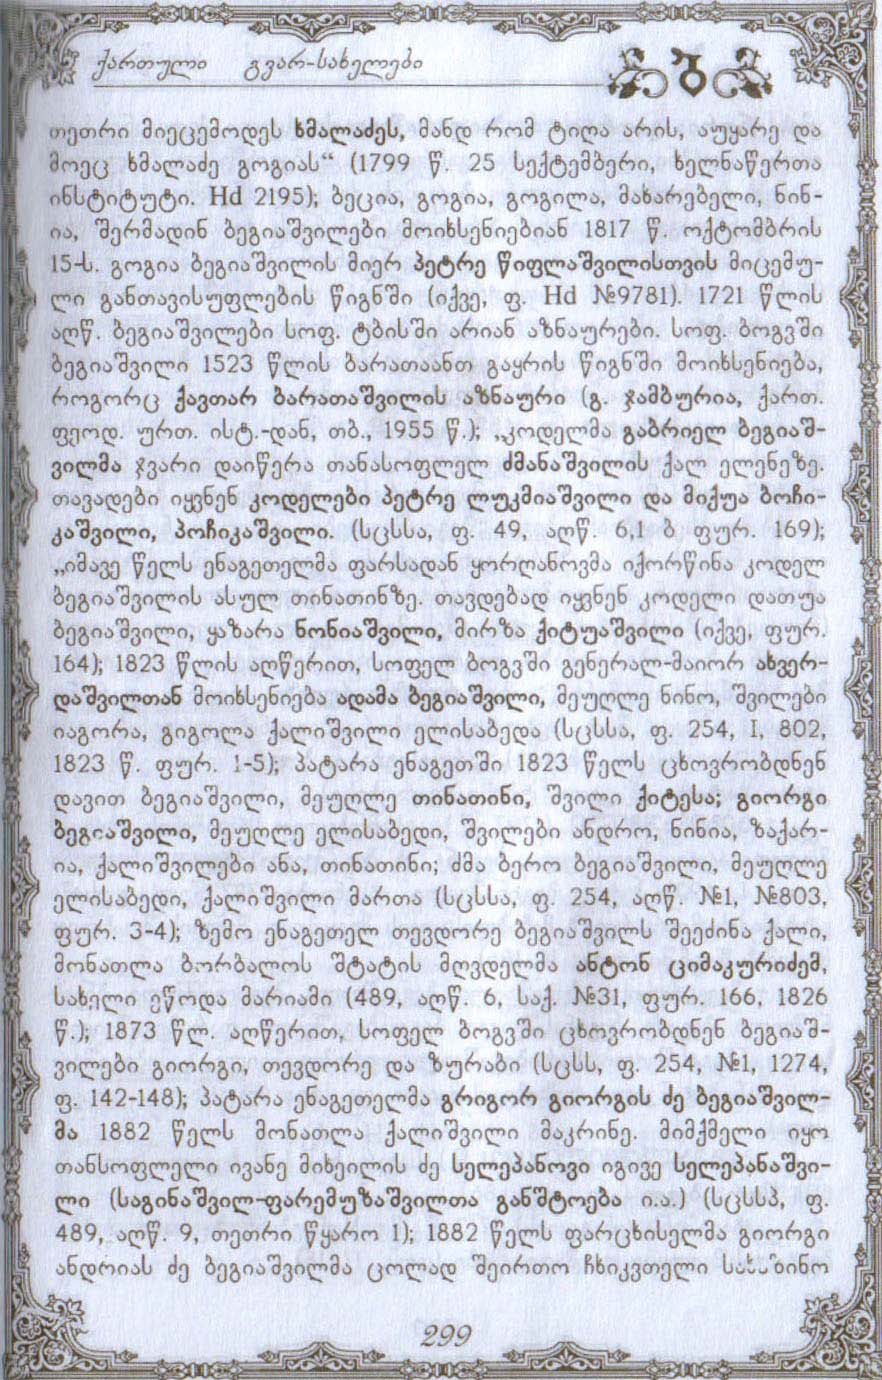 ქართული გვარ-სახელები
ბ
თეთრი მიეცემოდეს ხმალაძეს, მანდ რომ ტიღა არის, აუყარე და
მოეც ხმალაძე გოგიას“ (1799 წ. 25 სექტემბერი, ხელნაწერთა
ინსტიტუტი. Hd 2195); ბეცია, გოგია, გოგილა, მახარებელი, ნინ-
ია, შერმადინ ბეგიაშვილები მოიხსენიებიან 1817 წ. ოქტომბრის
15-ს. გოგია ბეგიაშვილის მიერ პეტრე წიფლაშვილისთვის მიცემუ-
ლი განთავისუფლების წიგნში (იქვე, ფ. Hd №9781). 1721 წლის
აღწ. ბეგიაშვილები სოფ. ტბისში არიან აზნაურები. სოფ. ბოგვში
ბეგიაშვილი 1523 წლის ბარათაანთ გაყრის წიგნში მოიხსენიება,
როგორც ქავთარ ბარათაშვილის აზნაური (გ. ჯამბურია, ქართ.
ფეოდ. ურთ. ისტ.-დან, თბ., 1955 წ.); „კოდელმა გაბრიელ ბეგიაშ-
ვილმა ჯვარი დაიწერა თანასოფლელ ძმანაშვილის ქალ ელენეზე.
თავადები იყვნენ კოდელები პეტრე ლუკმიაშვილი და მიქუა ბოჩი-
კაშვილი, პოჩიკაშვილი. (სცსსა, ფ. 49, აღწ. 6,1 ბ ფურ. 169);
„იმავე წელს ენაგეთელმა ფარსადან ყორღანოვმა იქორწინა კოდელ
ბეგიაშვილის ასულ თინათინზე. თავდებად იყვნენ კოდელი დათუა
ბეგიაშვილი, ყაზარა ნონიაშვილი, მირზა ქიტუაშვილი (იქვე, ფურ.
164); 1823 წლის აღწერით, სოფელ ბოგვში გენერალ-მაიორ ახვერ-
დაშვილთან მოიხსენიება ადამა ბეგიაშვილი, მეუღლე ნინო, შვილები
იაგორა, გიგოლა ქალიშვილი ელისაბედა (სცსსა, ფ. 254, I, 802,
1823 წ. ფურ. 1-5); პატარა ენაგეთში 1823 წელს ცხოვრობდნენ
დავით ბეგიაშვილი, მეუღლე თინათინი, შვილი ქიტესა; გიორგი
ბეგიაშვილი, მეუღლე ელისაბედი, შვილები ანდრო, ნინია, ზაქარ-
ია, ქალიშვილები ანა, თინათინი; ძმა ბერო ბეგიაშვილი, მეუღლე
ელისაბედი, ქალიშვილი მართა (სცსსა, ფ. 254, აღწ. №1, №803,
ფურ. 3-4); ზემო ენაგეთელ თევდორე ბეგიაშვილს შეეძინა ქალი,
მონათლა ბორბალოს შტატის მღვდელმა ანტონ ციმაკურიძემ,
სახელი ეწოდა მარიამი (489, აღწ. 6, საქ. №31, ფურ. 166, 1826
წ.); 1873 წლ. აღწერით, სოფელ ბოგვში ცხოვრობდნენ ბეგიაშ-
ვილები გიორგი, თევდორე და ზურაბი (სცსს, ფ. 254, №1, 1274,
ფ. 142-148); პატარა ენაგეთელმა გრიგორ გიორგის ძე ბეგიაშვილ-
მა 1882 წელს მონათლა ქალიშვილი მაკრინე. მიმქმელი იყო
თანსოფლელი ივანე მიხეილის ძე სელეპანოვი იგივე სელეპანაშვი-
ლი (საგინაშვილ-ფარემუზაშვილთა განშტოება ი.ა.) (სცსსპ, ფ.
489, აღწ. 9, თეთრი წყარო 1); 1882 წელს ფარცხისელმა გიორგი
ანდრიას ძე ბეგიაშვილმა ცოლად შეირთო ჩხიკვთელი
299